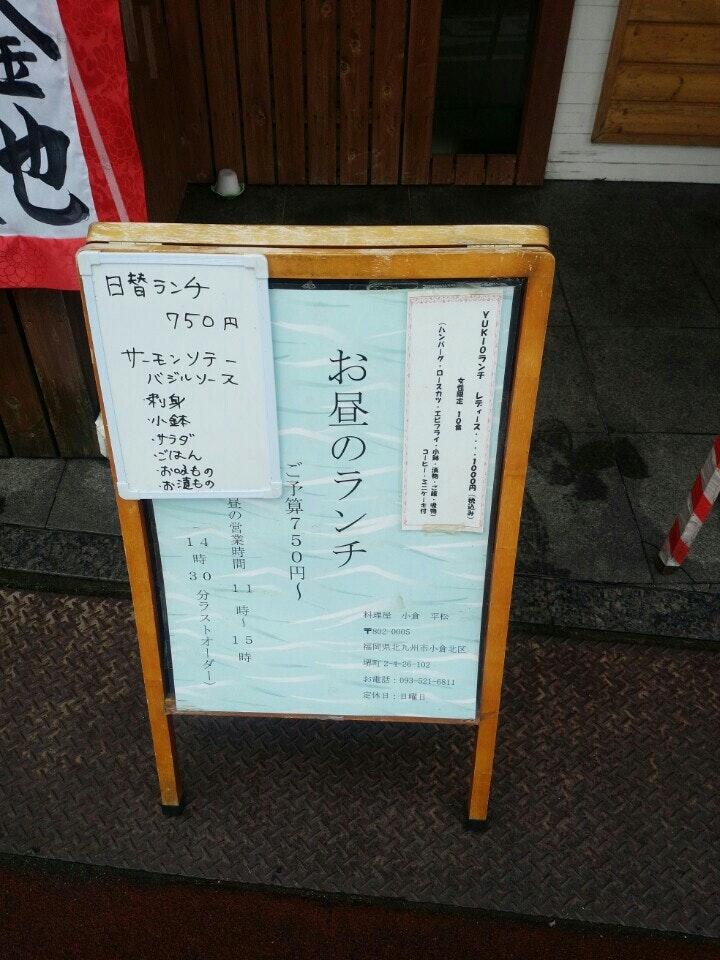 金
池
日替ランチ
750円
サーモンソテー
バジルソース
・刺身
・小鉢
・サラダ
・ごはん
・お吸もの
・お漬もの
お昼のランチ
ご予算750円~
昼の営業時間 11時~15時
14時30分ラストオーダー)
YUKIOランチ レディース・・・・1000円(税込み)
女性限定 10食
(ハンバーグ・ロースカツ・エビフライ・小鉢・漬物・ご飯・吸物)
コーヒー・ミニケーキ付
料理屋 小倉 平松
〒802-0005
福岡県北九州市小倉北区
堺町2-4-26-102
お電話:093-521-6811
定休日:日曜日